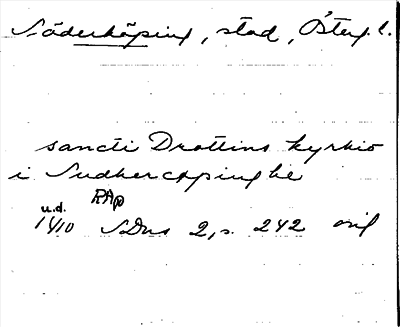 Söderköping, stad, Österg. l.
sancti Drottins kyrkio
i Sudhercopinghe
RAp
u.d.
1410 SDns 2, s. 242 orig